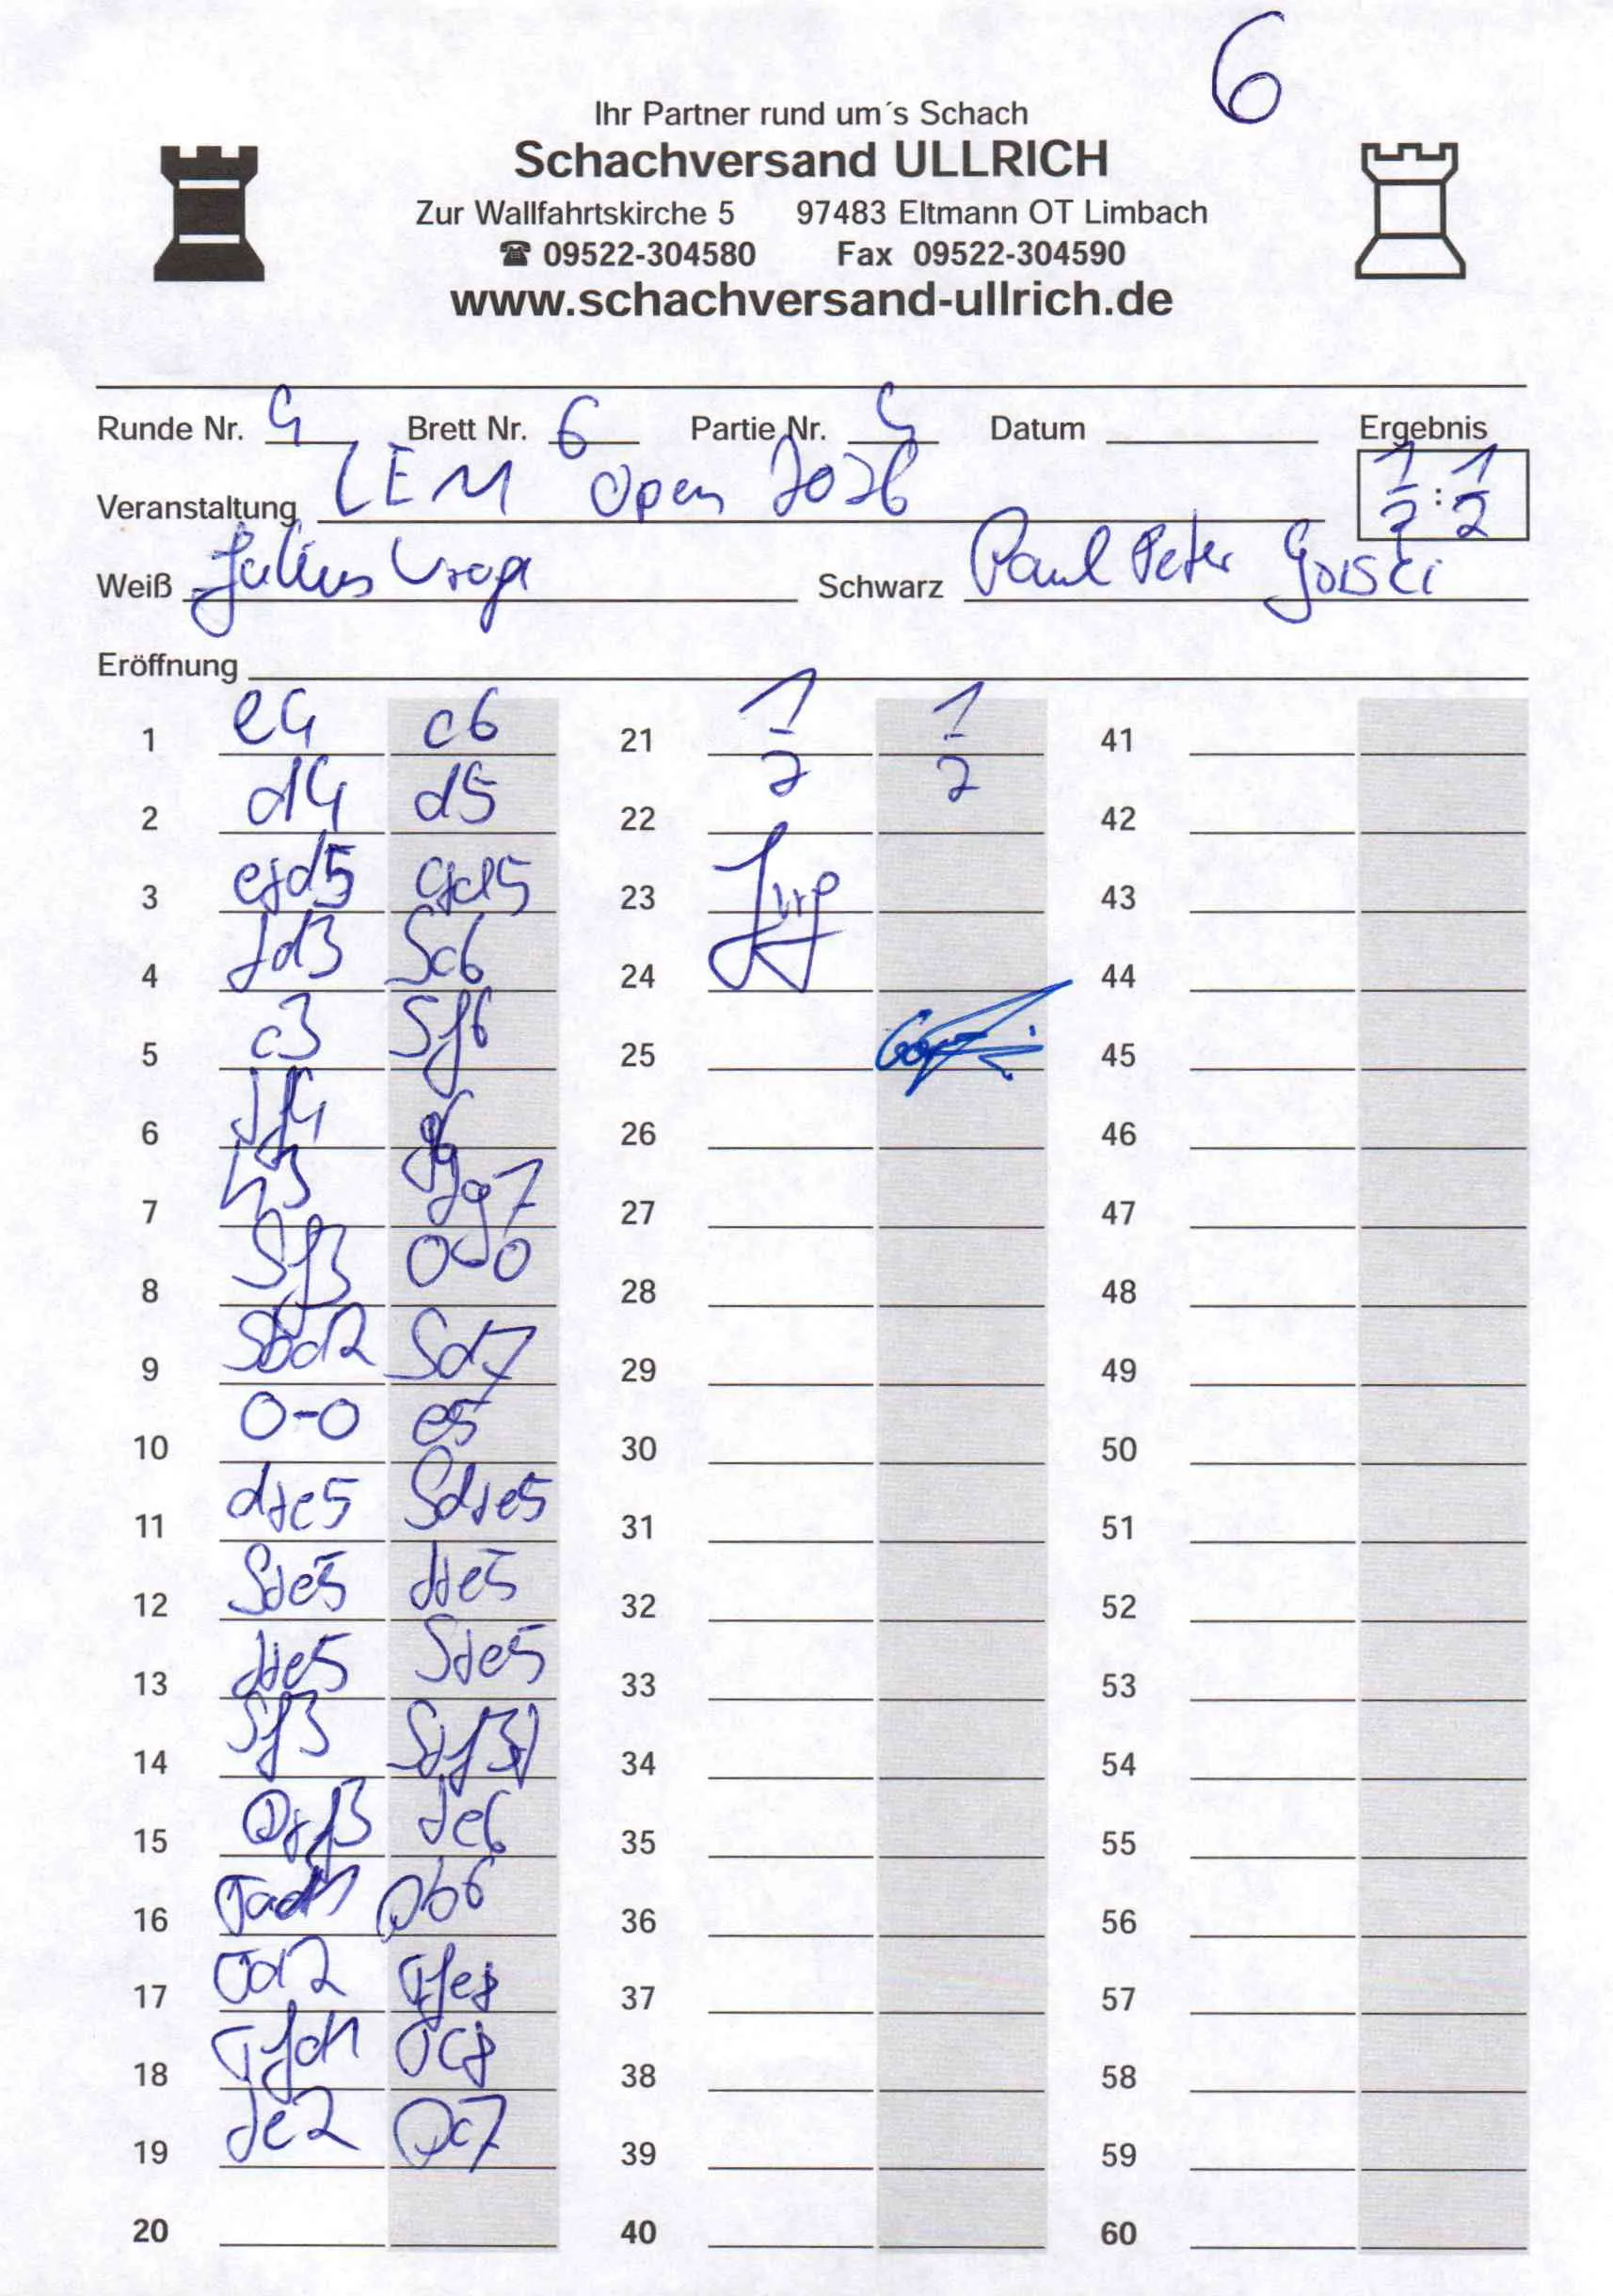 6
Ihr Partner rund um´s Schach
Schachversand ULLRICH
Zur Wallfahrtskirche 5 97483 Eltmann OT Limbach
☎ 09522-304580 Fax 09522-304590
www.schachversand-ullrich.de
Runde Nr. 4 Brett Nr. 6 Partie Nr. Datum Ergebnis
Veranstaltung LEM Open 2026 1/2 : 1/2
Weiß Julius Schwarz Paul Peter Gorski
Eröffnung
1 e4 c6 21 1/2 1/2 41
2 d4 d5 22 42
3 exd5 cxd5 23 43
4 Ld3 Sc6 24 44
5 c3 Sf6 25 45
6 Lf4 g6 26 46
7 h3 Lg7 27 47
8 Sf3 0-0 28 48
9 Sbd2 Sd7 29 49
10 0-0 e5 30 50
11 dxe5 Sdxe5 31 51
12 Sxe5 Lxe5 32 52
13 Lxe5 Sxe5 33 53
14 Sf3 Sxf3+ 34 54
15 Dxf3 Le6 35 55
16 Tad1 Db6 36 56
17 Td2 Tfe8 37 57
18 Tfd1 Tc8 38 58
19 Le2 Dc7 39 59
20 40 60